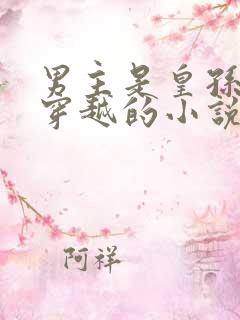 男主是皇孙
穿越的小说
阿祥